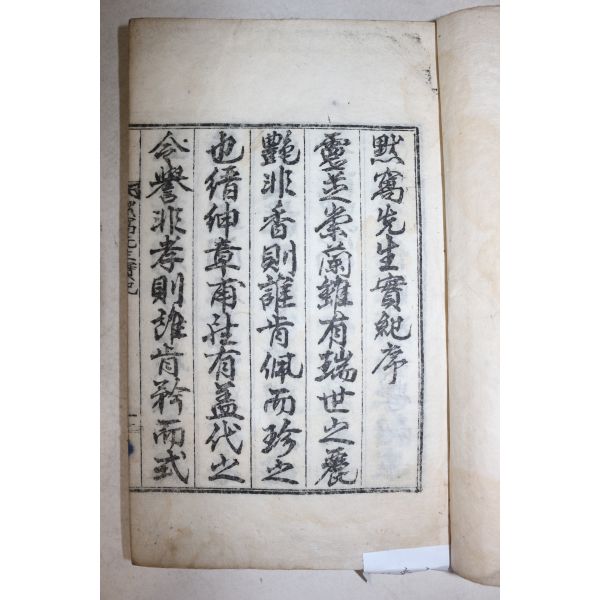 默窩先生實紀序
靈芝崇蘭雖有瑞世之麗
艷非香則誰肯佩而珍之
也縉紳章甫雖有蓋代之
令譽非孝則誰肯矜而式
默窩先生實紀